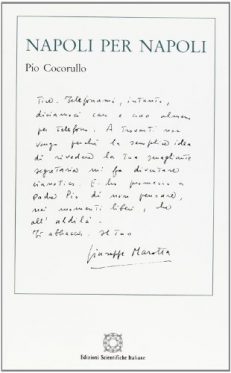 NAPOLI PER NAPOLI
Pio Cocorullo
Tuo. Telefonami, intanto,
diciamoci cau e ciao almeno
per telefono. A trovarti non
vengo perché la semplice idea
di rivedere la tua smagliante
segretaria mi fa diventare
cianotico. E ho promesso a
Padre Pio di non pensare,
nei momenti liberi, che
all'aldilà.
Ti abbraccio. Il tuo
Giuseppe Marotta
Edizioni Scientifiche Italiane